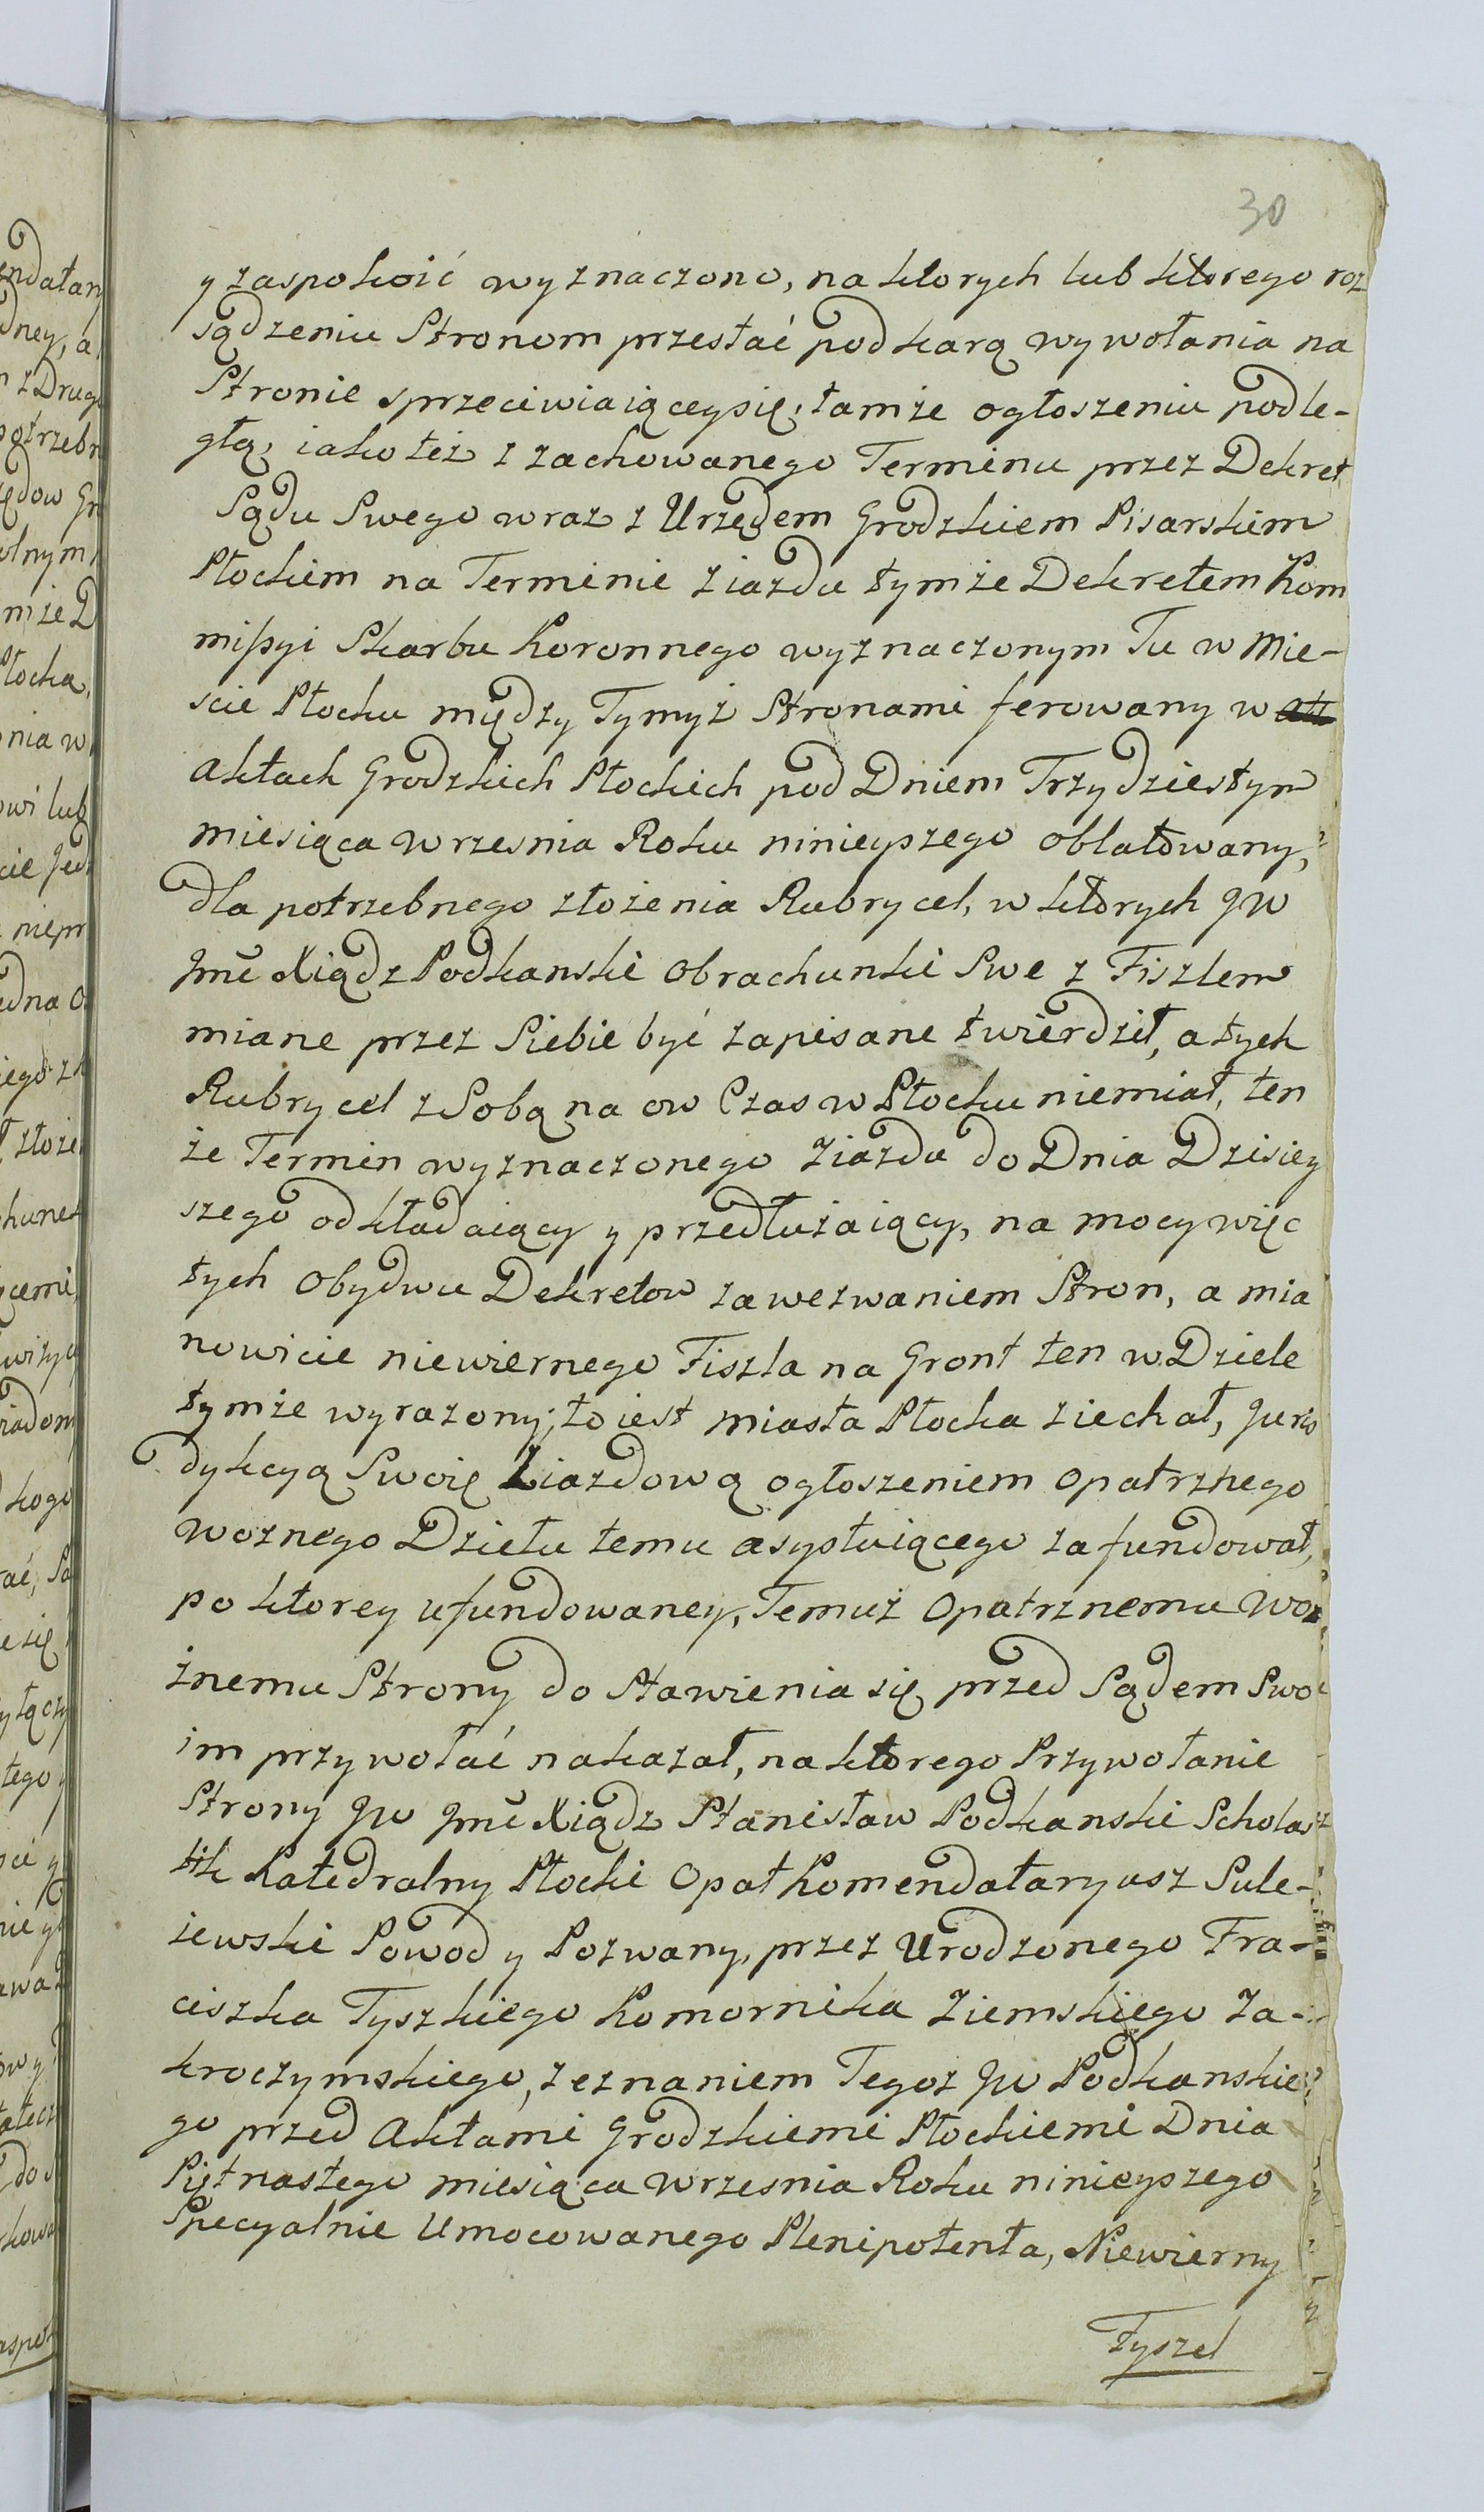 30
y zaspokoić wyznaczono, na ktorych lub ktorego roz
sądzeniu Stronom przestać pod karą wywołania na
Stronie sprzeciwiaiącey się, tamże ogłoszeniu podle-
głą, iako też z zachowanego Terminu przez Dekret
Sądu Swego wraz z Urzędem Grodzkiem Pisarskiem
Płockiem na Terminie Ziazdu tymże Dekretem Kom
missyi Skarbu Koronnego wyznaczonym Tu w Mie-
scie Płocku między Tymyż Stronami ferowany w
aktach Grodzkich Płockich pod Dniem Trzydziestym
miesiąca Wrzesnia Roku ninieyszego oblatowany,
dla potrzebnego złożenia Rubrycel, w ktorych JW
Jmć Xiądz Podkanski obrachunki Swe z Fiszlem
miane przez Siebie być zapisane twierdził, a tych
Rubrycel z Sobą na ow Czas w Płocku niemiał, ten
że Termin wyznaczonego Ziazdu do Dnia Dzisiey
szego odkładaiący y przedłużaiący, na mocy więc
tych obydwu Dekretow zawezwaniem Stron, a mia
nowicie niewiernego Fiszla na Gront ten w Dziele
tymże wyrazony, to iest miasta Płocka ziechał, Juris
dykcyą Swoię Ziazdową ogłoszeniem opatrznego
woznego Dziełu temu asystuiącego zafundował,
po ktorey ufundowaney, Temuż opatrznemu Wo
żnemu Strony do Stawienia się przed Sądem Swo
im przywołać nakazał, na ktorego Przywołanie
Strony JW Jmć Xiądz Stanisław Podkanski Scholas
tik Katedralny Płocki Opat Komendataryusz Sule-
iewski Powod y Pozwany, przez Urodzonego Fra-
ciszka Tyszkiego Komornika Ziemskiego Za-
kroczymskiego, zeznaniem Tegoz JW Podkanskie
go przed Aktami Grodzkiemi Płockiemi Dnia
Piętnastego miesiąca Wrzesnia Roku ninieyszego
Specyalnie Umocowanego Plenipotenta, Niewierny
Fyszel